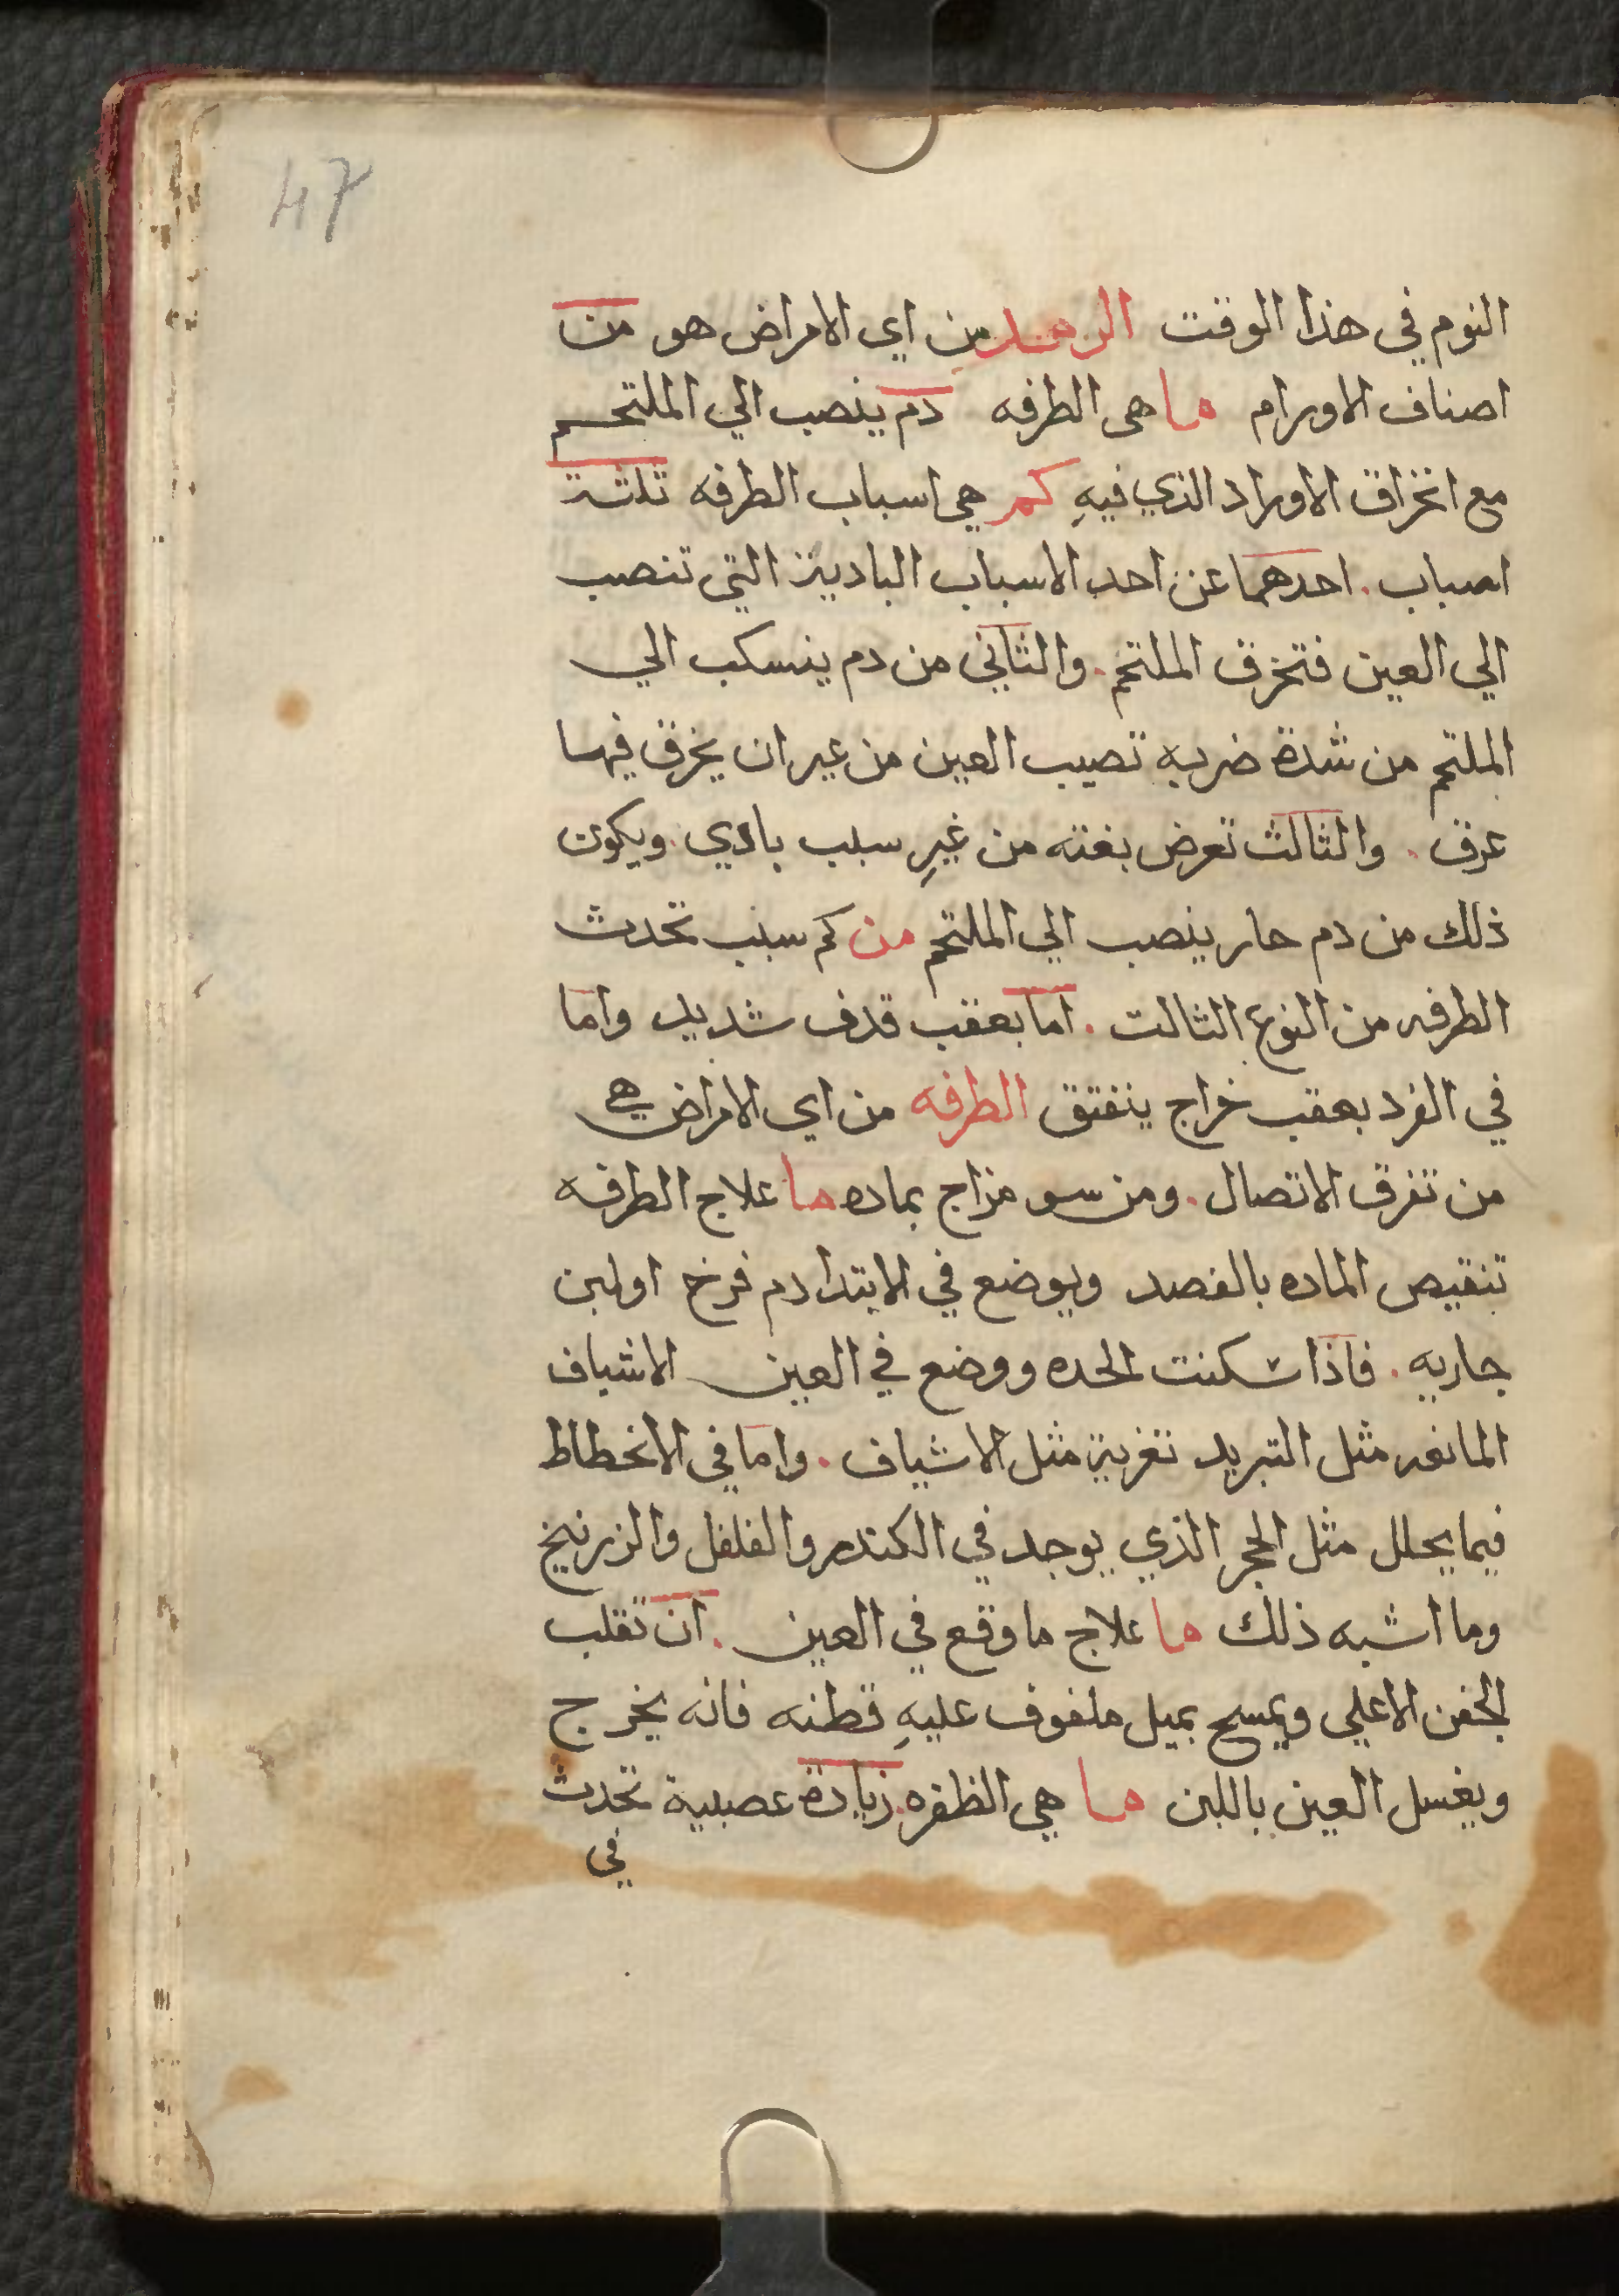 47
النوم في هذا الوقت الرمد من اي الامراض هو من
اصناف الاورام ما هى الطرفه دم ينصب الي الملتحم
مع انخراق الاوراد الذي فيهِ كم هي اسباب الطرفه ثلثة
اصباب . احدهما عن احد الاسباب البادية التي تنصب
الي العين فتخرق الملتحم . والثاني من دم ينسكب الي
الملتحم من شدة ضربه تصيب العين من غير ان يخرق فيها
عرق . والثالث تعرض بغته من غيرِ سبب بادي . ويكون
ذلك من دم حار ينصب الي الملتحم من كم سبب تحدث
الطرفه من النوع الثالت . اما بعقب قدف شديد واما
في الفرد بعقب خراج ينفتق الطرفه من اي الامراض هي
من تفرق الاتصال . ومن سو مزاج بماده ما علاج الطرفه
تنقيص الماده بالفصد ويوضع في الابتدا دم فرخ او لبن
جاريه . فاذا سكنت الحده ووضع في العين الاشياف
المانعه مثل التبريد تغرية مثل الاشياف . واما في الانحطاط
فيما يحلل مثل الحجر الذي يوجد في الكندر والفلفل والزرنيخ
وما اشبه ذلك ما علاج ما وقع في العين . ان تقلب
الجفن الاعلي ويمسح بميل ملفوف عليهِ قطنه فانه يخرج
ويغسل العين باللبن ما هي الظفره . زيادة عصبية تحدث
في